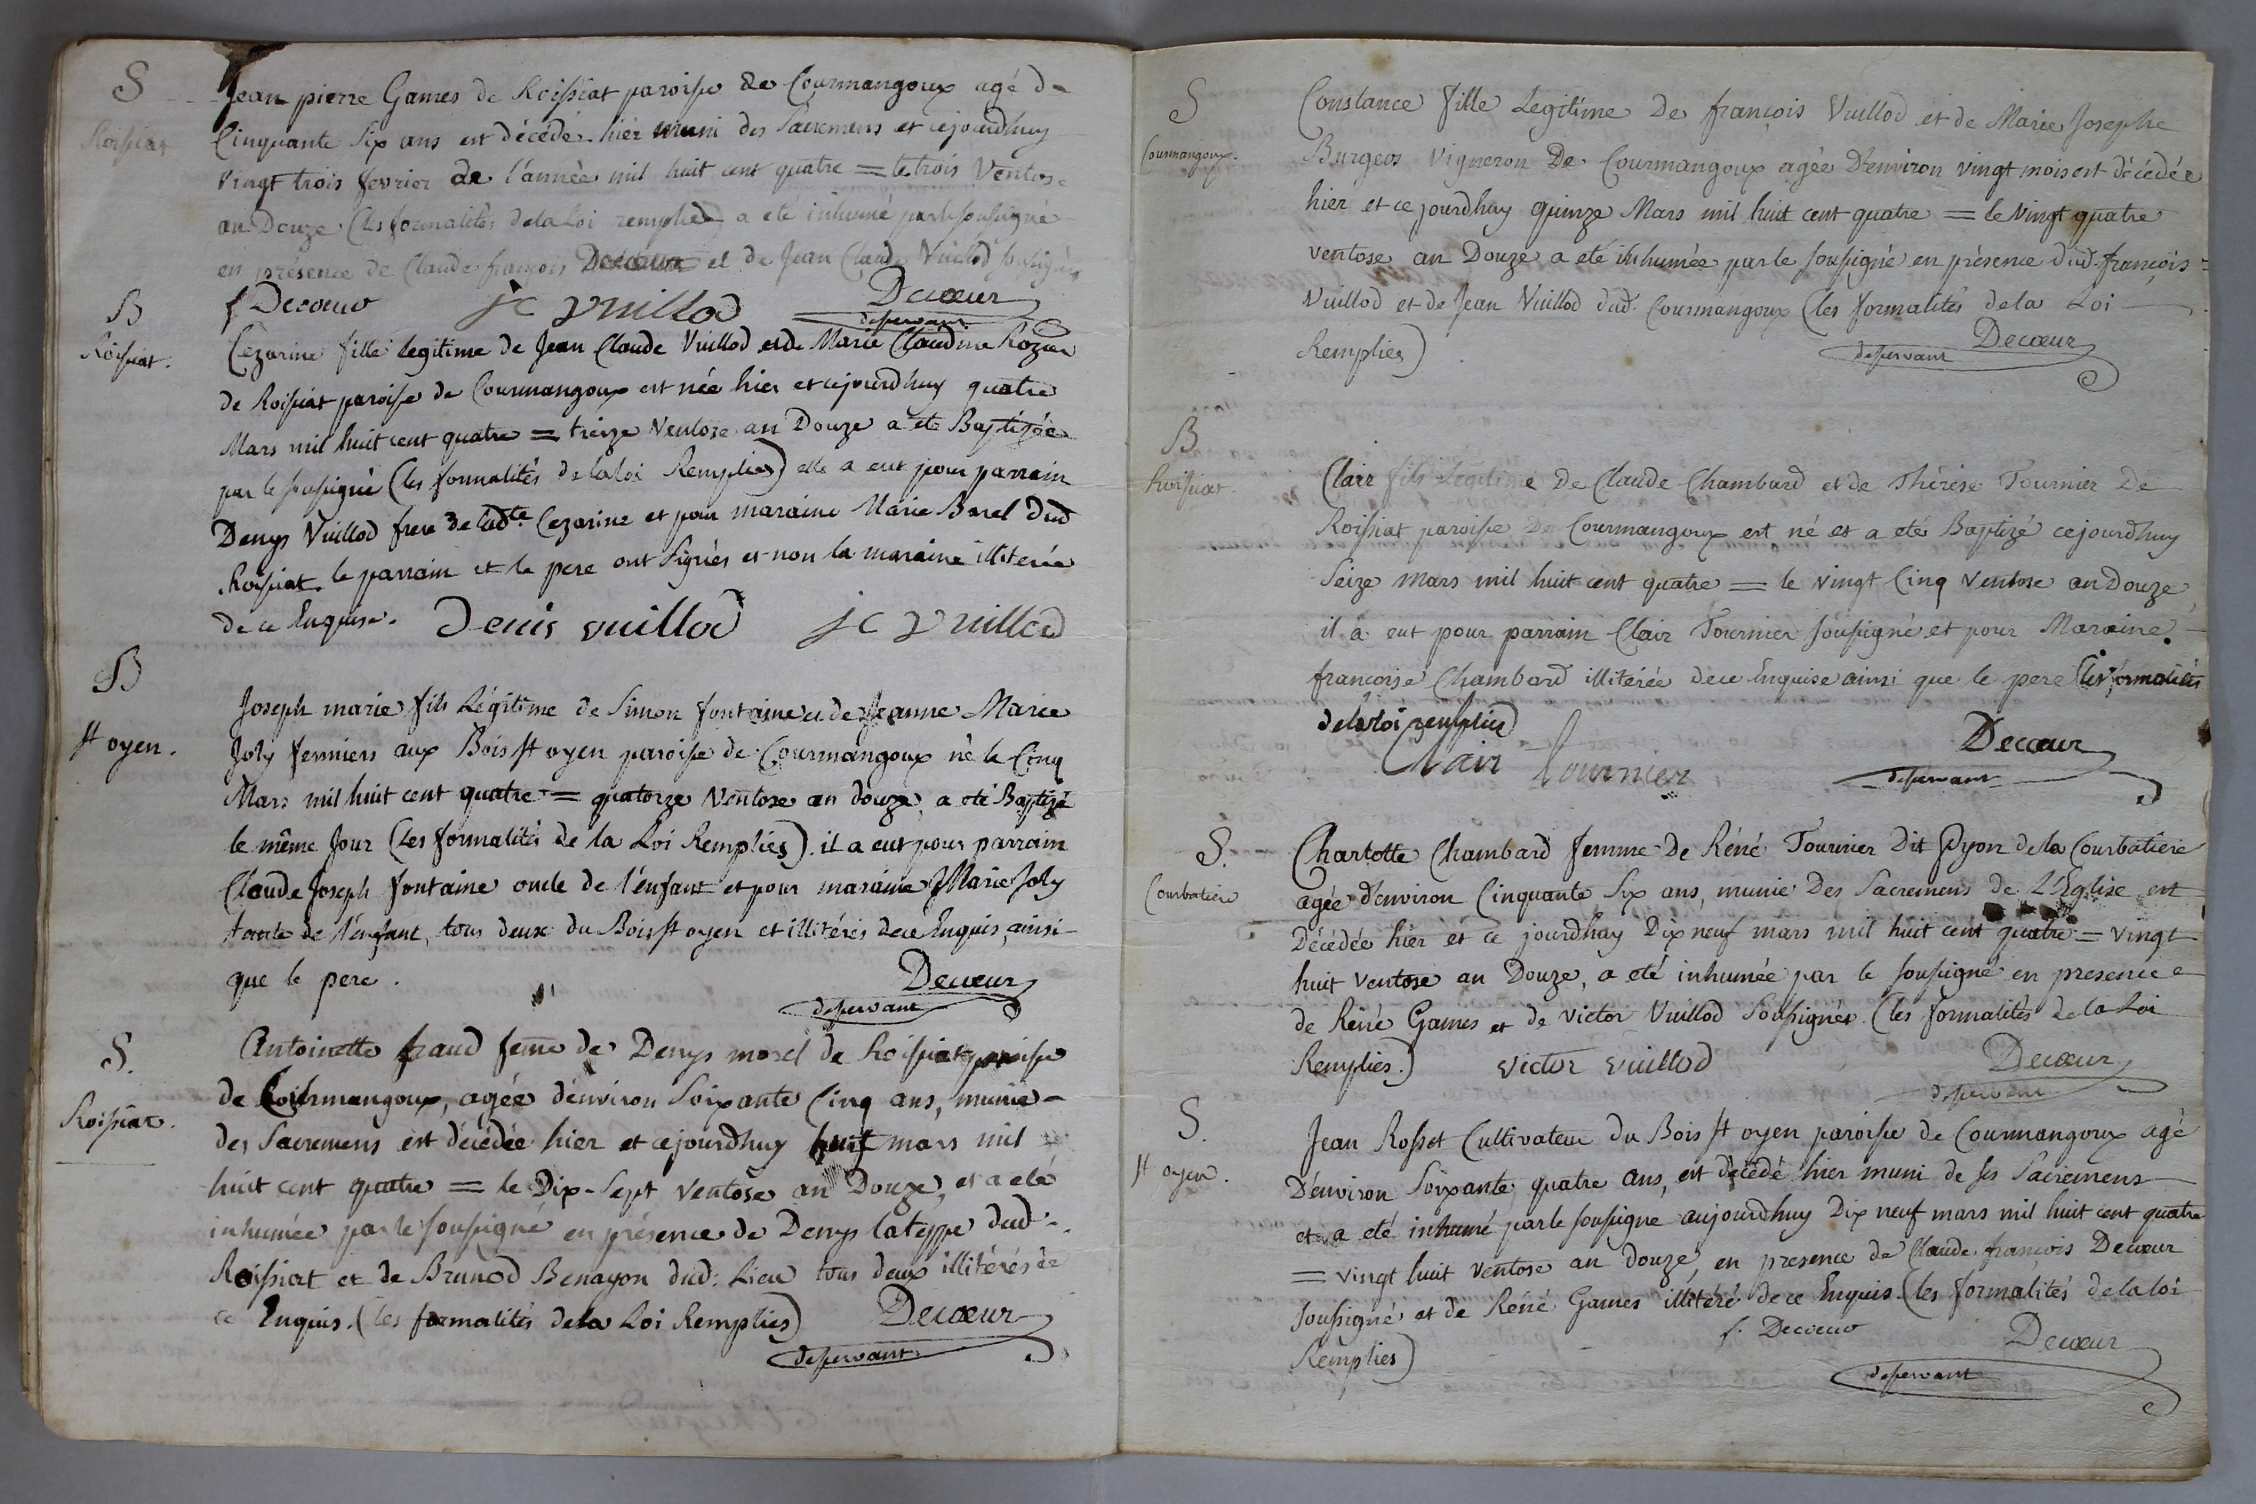 S
Roissiat
Jean pierre Games de Roissiat paroisse de Courmangoux agé de
Cinquante Six ans est décédé hier muni des Sacremens et cejourdhuy
vingt trois fevrier de l'année mil huit cent quatre = le trois Ventose
an Douze (les formalités dela Loi remplies) a eté inhumé par le soussigné
en présence de Claude françois Decoeur et de Jean Claude Vuillod soussignés
f Decoeur jc vuillod Decoeur
desservant
B
Roissiat.
Cezarine fille legitime de Jean Claude Vuillod et de Marie Claudine Rozier
de Roissiat paroisse de Courmangoux est née hier et cejourdhuy quatre
Mars mil huit cent quatre = treize Ventose an Douze a eté Baptizée
par le soussigné (les formalités de la loi Remplies) elle a eut pour parrain
Denys Vuillod frere de ladte Cezarine et pour maraine Marie Borel dud
Roissiat le parrain et le pere ont signés et non la maraine illiterée
de ce Enquise. Denis vuillod jc vuillod
B
st oyen.
Joseph marie fils Légitime de Simon fontaine et de Jeanne Marie
Joly fermiers aux Bois st oyen paroisse de Courmangoux né le Cinq
Mars mil huit cent quatre = quatorze Ventose an douze, a eté Baptizé
le même Jour (les formalités de la Loi Remplies). il a eut pour parrain
Claude Joseph fontaine oncle de l'énfant et pour maraine Marie Joly
tante de l'énfant, tous deux du Bois st oyen et illitérés de ce Enquis, ainsi
que le pere. Decoeur
desservant
S.
Roissiat.
Antoinette fraud feme de Denys morel de Roissiat paroisse
de Courmangoux, agée d'énviron Soixante Cinq ans, munie
des Sacremens est décédée hier et cejourdhuy huit mars mil
huit cent quatre = le Dix-Sept ventose an Douze, et a eté
inhumée par le soussigné en présence de Denys lateyppe dud
Roissiat et de Brunod Benayon dud. Lieu tous deux illitérés de
ce Enquis. (les formalités dela Loi Remplies) Decoeur
desservant
S
Courmangoux.
Constance fille Legitime De françois Vuillod et de Marie Josephe
Burgeos vigneron De Courmangoux agée D'environ vingt mois est décédée
hier et ce jourdhuy quinze Mars mil huit cent quatre = le vingt quatre
ventose an Douze a eté inhumée par le soussigné en présence dud. françois
Vuillod et de Jean Vuillod dud. Courmangoux (les formalités de la Loi
Remplies) Decoeur
desservant
B
Roissiat.
Clair fils Legitime De Claude Chambard et de Thérèse Tournier De
Roissiat paroisse De Courmangoux est né et a eté Baptizé cejourdhuy
Seize mars mil huit cent quatre = le vingt Cinq ventose an Douze,
il a eut pour parrain Clair Tournier soussigné et pour Maraine
francoise Chambard illitérée de ce Enquise ainsi que le pere (les formalités
de la loi remplies)
Clair fournier Decoeur
desservant
S.
Courbatiere
Charlotte Chambard femme De Réné Tournier Dit Dyon de la Courbatiere
agée d'énviron Cinquante Six ans, munie Des Sacremens de L'Eglise est
Décédée hier et ce jourdhuy Dix neuf mars mil huit cent quatre = vingt
huit ventose an Douze, a eté inhumée par le soussigné en presence
de Réné Games et de victor Vuillod Soussignés (les formalités de la Loi
Remplies.) victor vuillod Decoeur
desservant
S.
st oyen.
Jean Rosset Cultivateur du Bois st oyen paroisse de Courmangoux agé
D'énviron Soixante quatre ans, est décédé hier muni de ses Sacremens
et a eté inhumé par le soussigné aujourdhuy Dix neuf mars mil huit cent quatre
= vingt huit ventose an douze, en presence de Claude françois Decoeur
soussigné et de Réné Games illitéré de ce Enquis. (les formalités de la loi
Remplies) f. Decoeur Decoeur
desservant